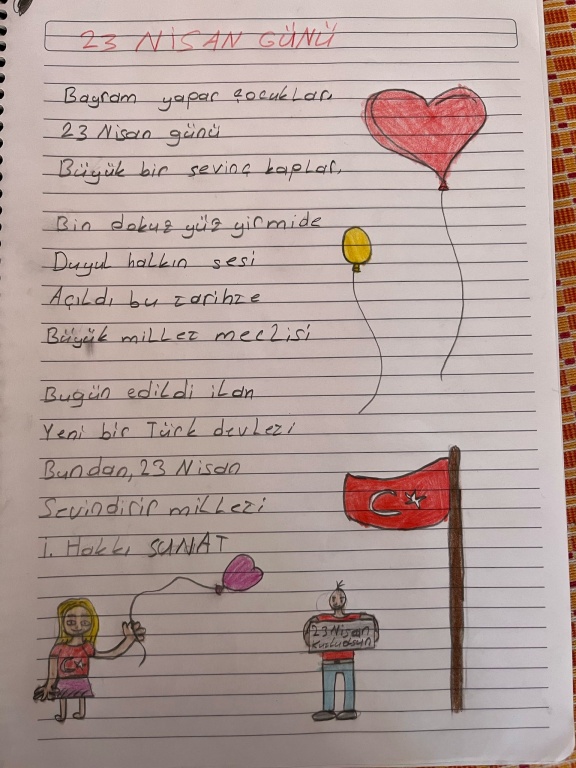 23 NİSAN GÜNÜ
Bayram yapar çocuklar,
23 Nisan günü
Büyük bir sevinç kaplar,
Bin dokuz yüz yirmide
Duyul halkın sesi
Açıldı bu tarihte
Büyük millet meclisi
Bugün edildi ilan
Yeni bir Türk devleti
Bundan, 23 Nisan
Sevindirir milleti
İ. Hakkı SUNAT
23 Nisan
Kutlu olsun